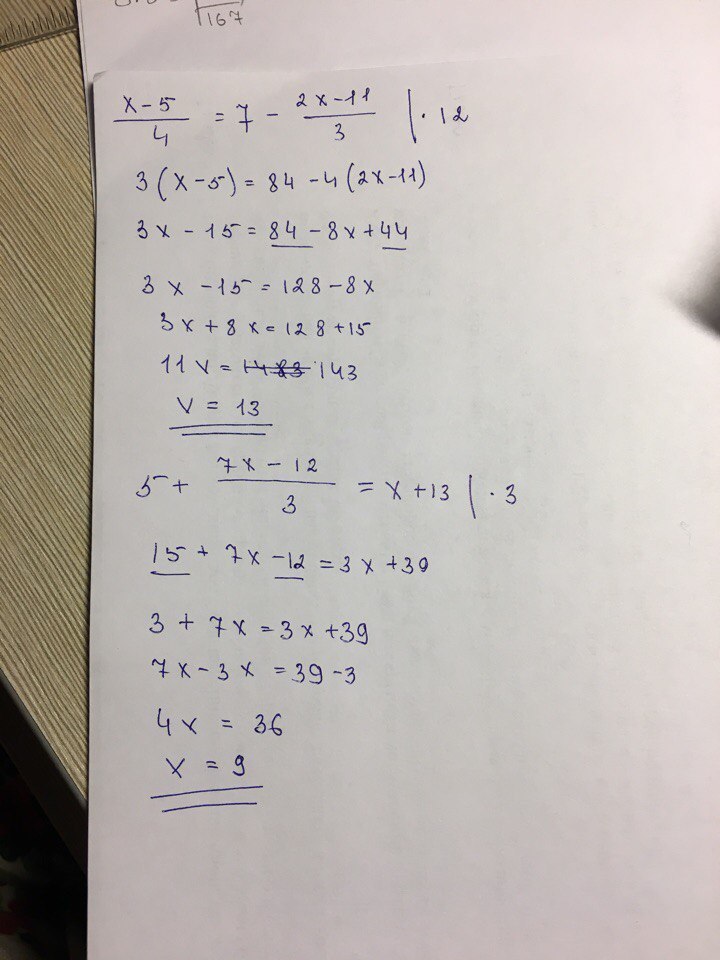 √167
x-5/4 = 7 - 2x-11/3 | · 12
3(x-5) = 84 - 4(2x-11)
3x - 15 = 84 - 8x + 44
3x - 15 = 128 - 8x
3x + 8x = 128 + 15
11x = 143
x = 13
5 + 7x - 12/3 = x + 13 | · 3
15 + 7x - 12 = 3x + 39
3 + 7x = 3x + 39
7x - 3x = 39 - 3
4x = 36
x = 9